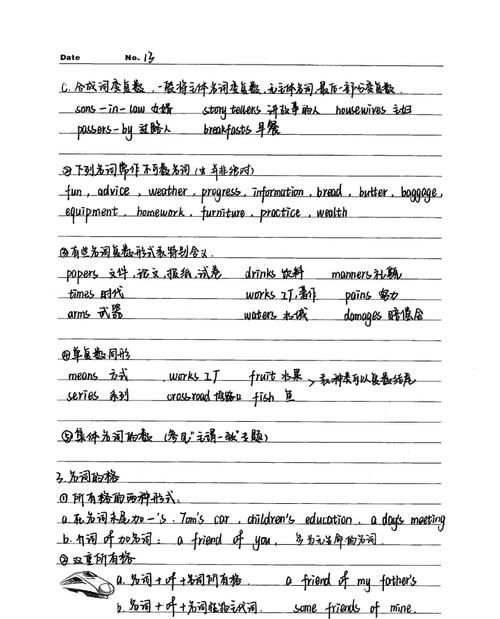 Date No. 13
C. 合成词变复数,一般将主体名词变复数,无主体名词,最后一部分变复数.
sons-in-law 女婿 storytellers 讲故事的人 housewives 主妇
passers-by 过路人 breakfasts 早餐
②下列名词常作不可数名词(但并非绝对)
fun, advice, weather, progress, information, bread, butter, baggage,
equipment, homework, furniture, practice, wealth
③有些名词复数形式表特别含义.
papers 文件,论文,报纸,试卷 drinks 饮料 manners 礼貌
times 时代 works 工厂,著作 pains 努力
arms 武器 waters 水域 damages 赔偿金
④单复数同形
means 方式 works 工厂 fruit 水果 > 表种类可以复数结尾
series 系列 crossroad 十字路口 fish 鱼
⑤集体名词的数 (参见"主谓一致"专题)
3. 名词的格
①所有格的两种形式.
a. 在名词末尾加-'s: Tom's car, children's education, a day's meeting
b. 介词of加名词: a friend of you, 多为无生命的名词.
②双重所有格
a. 名词+of+名词所有格. a friend of my father's
b. 名词+of+名词性物主代词. some friends of mine.